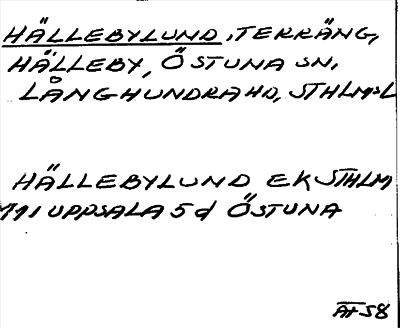 HÄLLEBYLUND, TERRÄNG,
HÄLLEBY, ÖSTUNA SN,
LÅNGHUNDRA HD, STHLMS L
HÄLLEBYLUND EK STHLM
111 UPPSALA 5d ÖSTUNA
ÄH 58